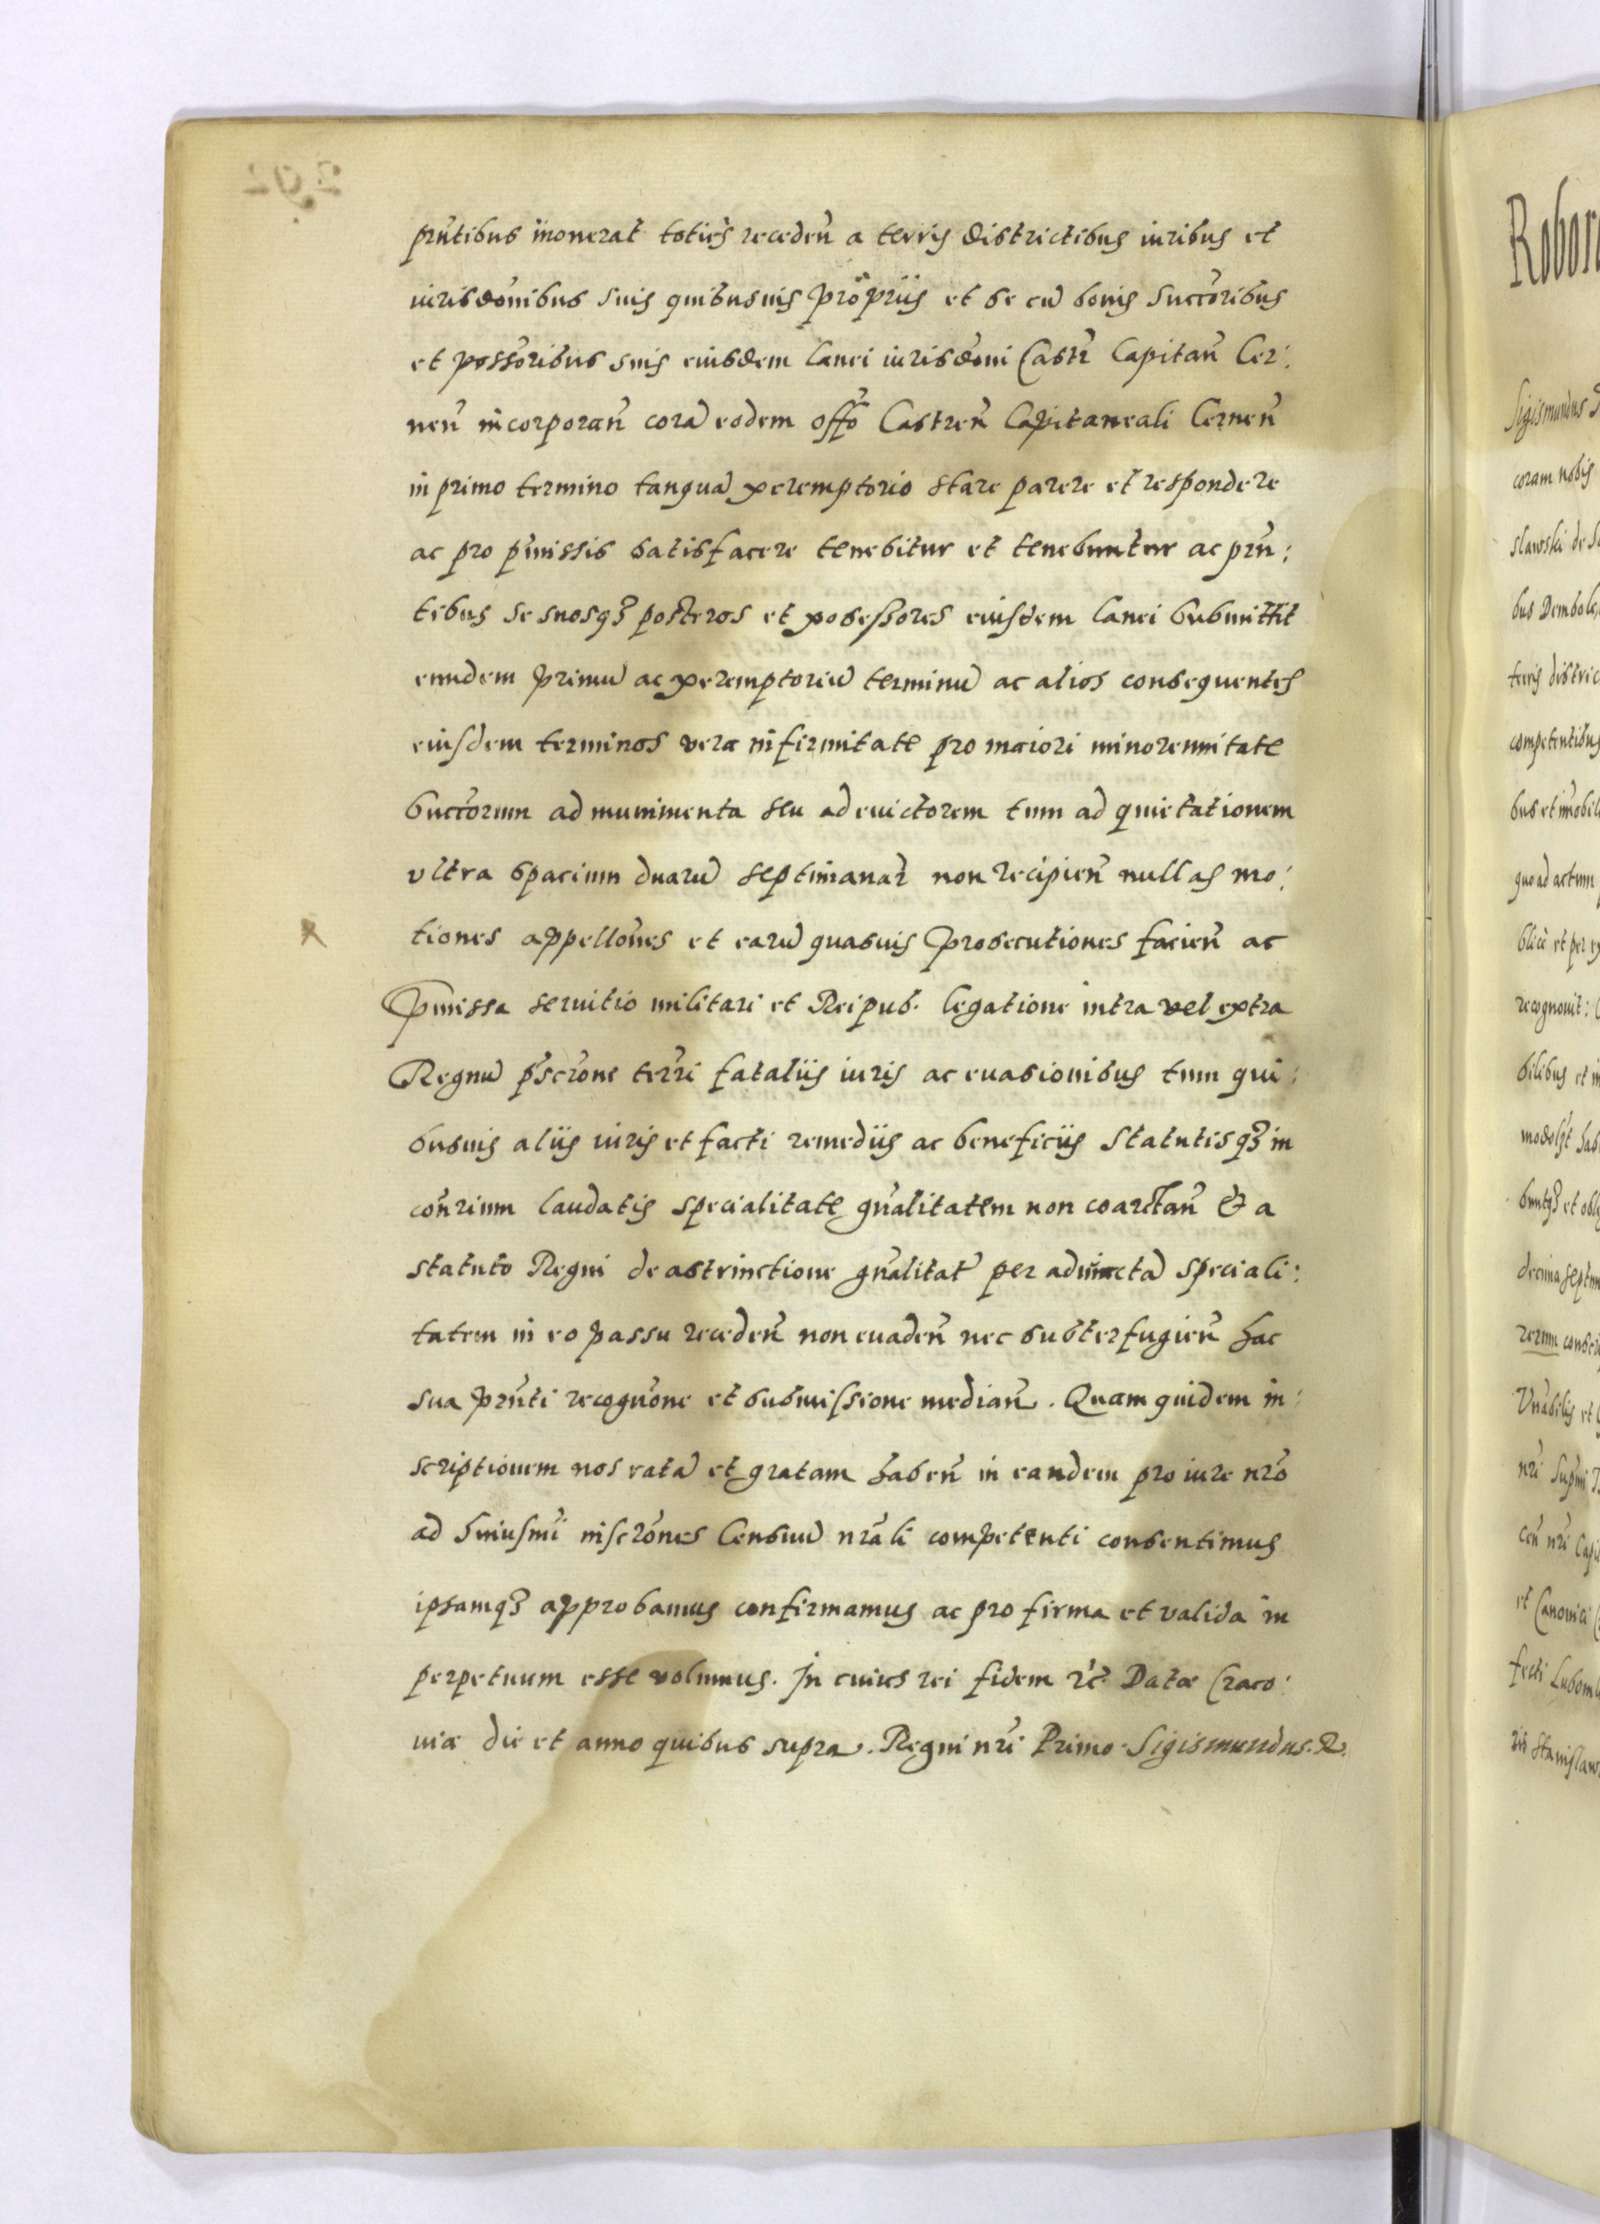 prñtibus iñonerat toties recedeñ a terris districtibus iuribus et
iurisdõnibus suis quibusuis proprÿs et se cũ bonis succõribus
et possõribus suis eiusdem lanei iurisdõni Castr̃ Capitañ Cer:
neñ incorporañ corã eodem offõ Castreñ Capitaneali Cerneñ
in primo termino tanquã peremptorio stare parere et respondere
ac pro p̃missis satisfacere tenebitur et tenebuntur ac prñ:
tibus se suosq3 posteros et possessores eiusdem lanei submittit
eundem primũ ac peremptoriũ terminũ ac alios consequentes
eiusdem terminos vera infirmitate pro maiori minorennitate
succõrum ad munimenta seu ad euictorem tum ad quietationem
vltra spacium duarũ septimanar̃ non recipieñ nullas mo:
tiones appellõnes et earũ quasuis prosecutiones facieñ ac
p̃missa seruitio militari et Reipub. legatione intra vel extra
Regnũ p̃scrõne terr̃i fatalÿs iuris ac euasionibus tum qui:
busuis alÿs iuris et facti remedÿs ac beneficÿs statutisq3 in
coñrium laudatis specialitate gñalitatem non coarctañ & a
statuto Regni de astrinctione gñalitat̃ per adiunctã speciali:
tatem in eo passu recedeñ non euadeñ nec subterfugieñ hac
sua prñti recogñone et submissione mediañ. Quam quidem in:
scriptionem nos ratã et gratam habeñ in eandem pro iure nrõ
ad huiusmõi inscrõnes Censuũ nrãli competenti consentimus
ipsamq3 approbamus confirmamus ac pro firma et valida in
perpetuum esse volumus. In cuius rei fidem rc̃. Datæ Craco:
uiæ die et anno quibus supra. Regni nrĩ Primo. Sigismundus. R.
Sigismundus
coram nobis
slawski de
bus Dembole
terris distric
competentibus
bus et im̃obil
quo ad actum
blicè et per
recognouit:
bilibus et
decima septim
rerum
et Canonici
ris Stanislaw